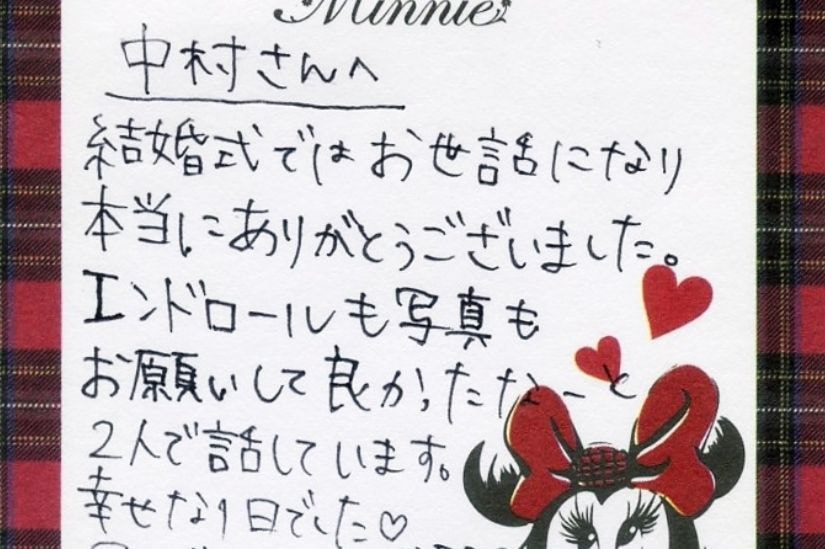 Minnie
中村さんへ
結婚式ではお世話になり
本当にありがとうございました。
エンドロールも写真も
お願いして良かったなーと
2人で話しています。
幸せな1日でした♡